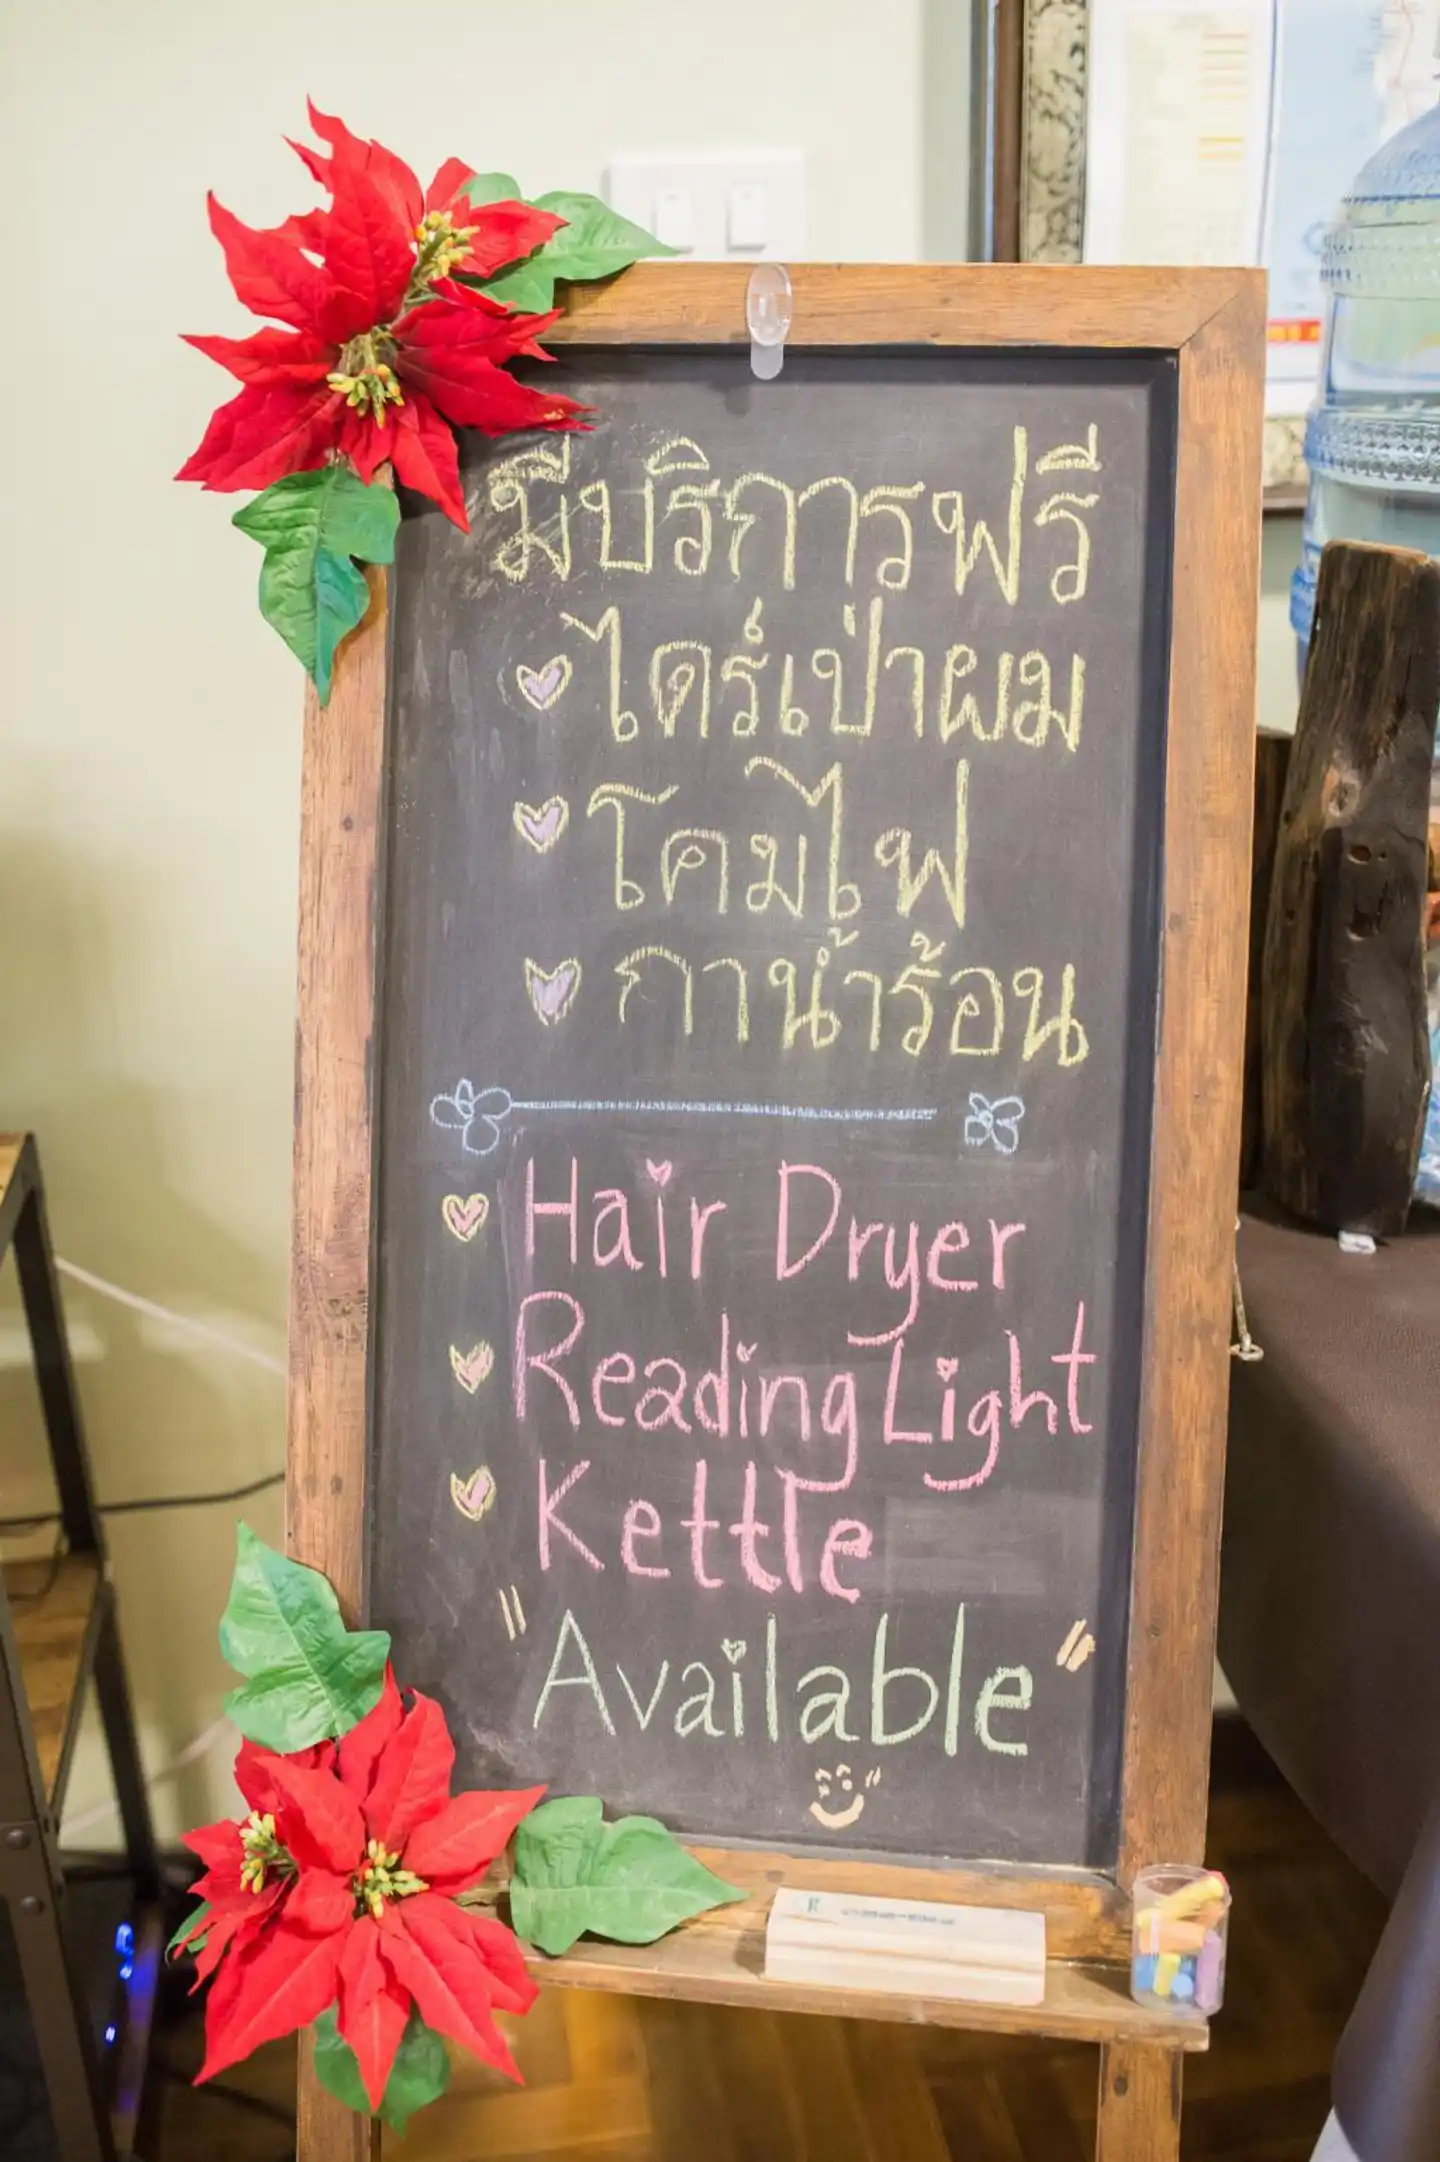 มีบริการฟรี
ไดร์เป่าผม
โคมไฟ
กาน้ำร้อน
Hair Dryer
Reading Light
Kettle
"Available"